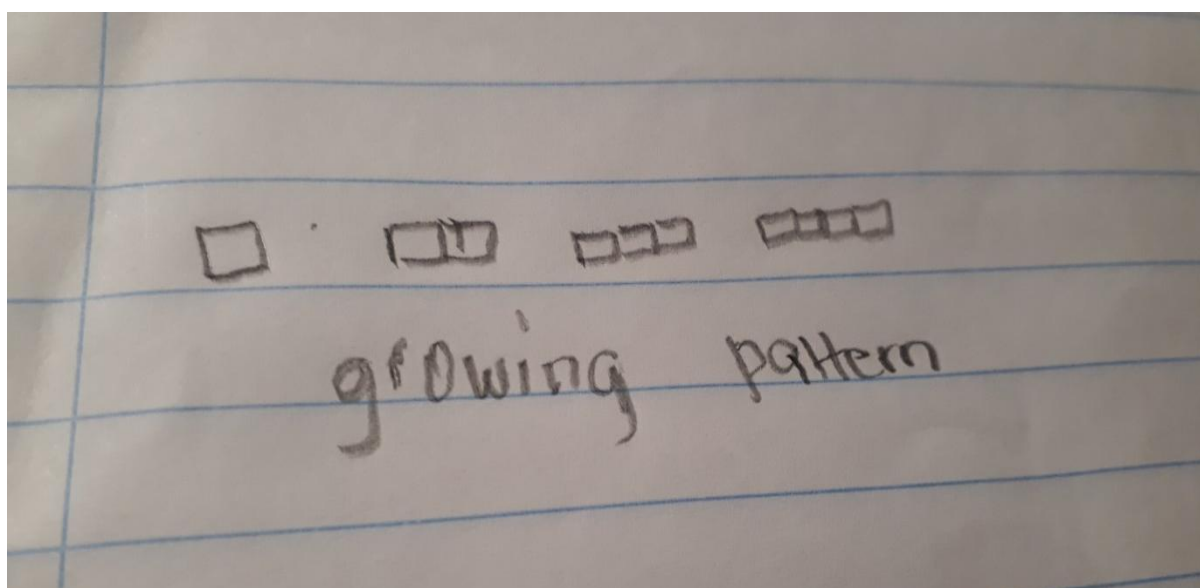 growing pattern